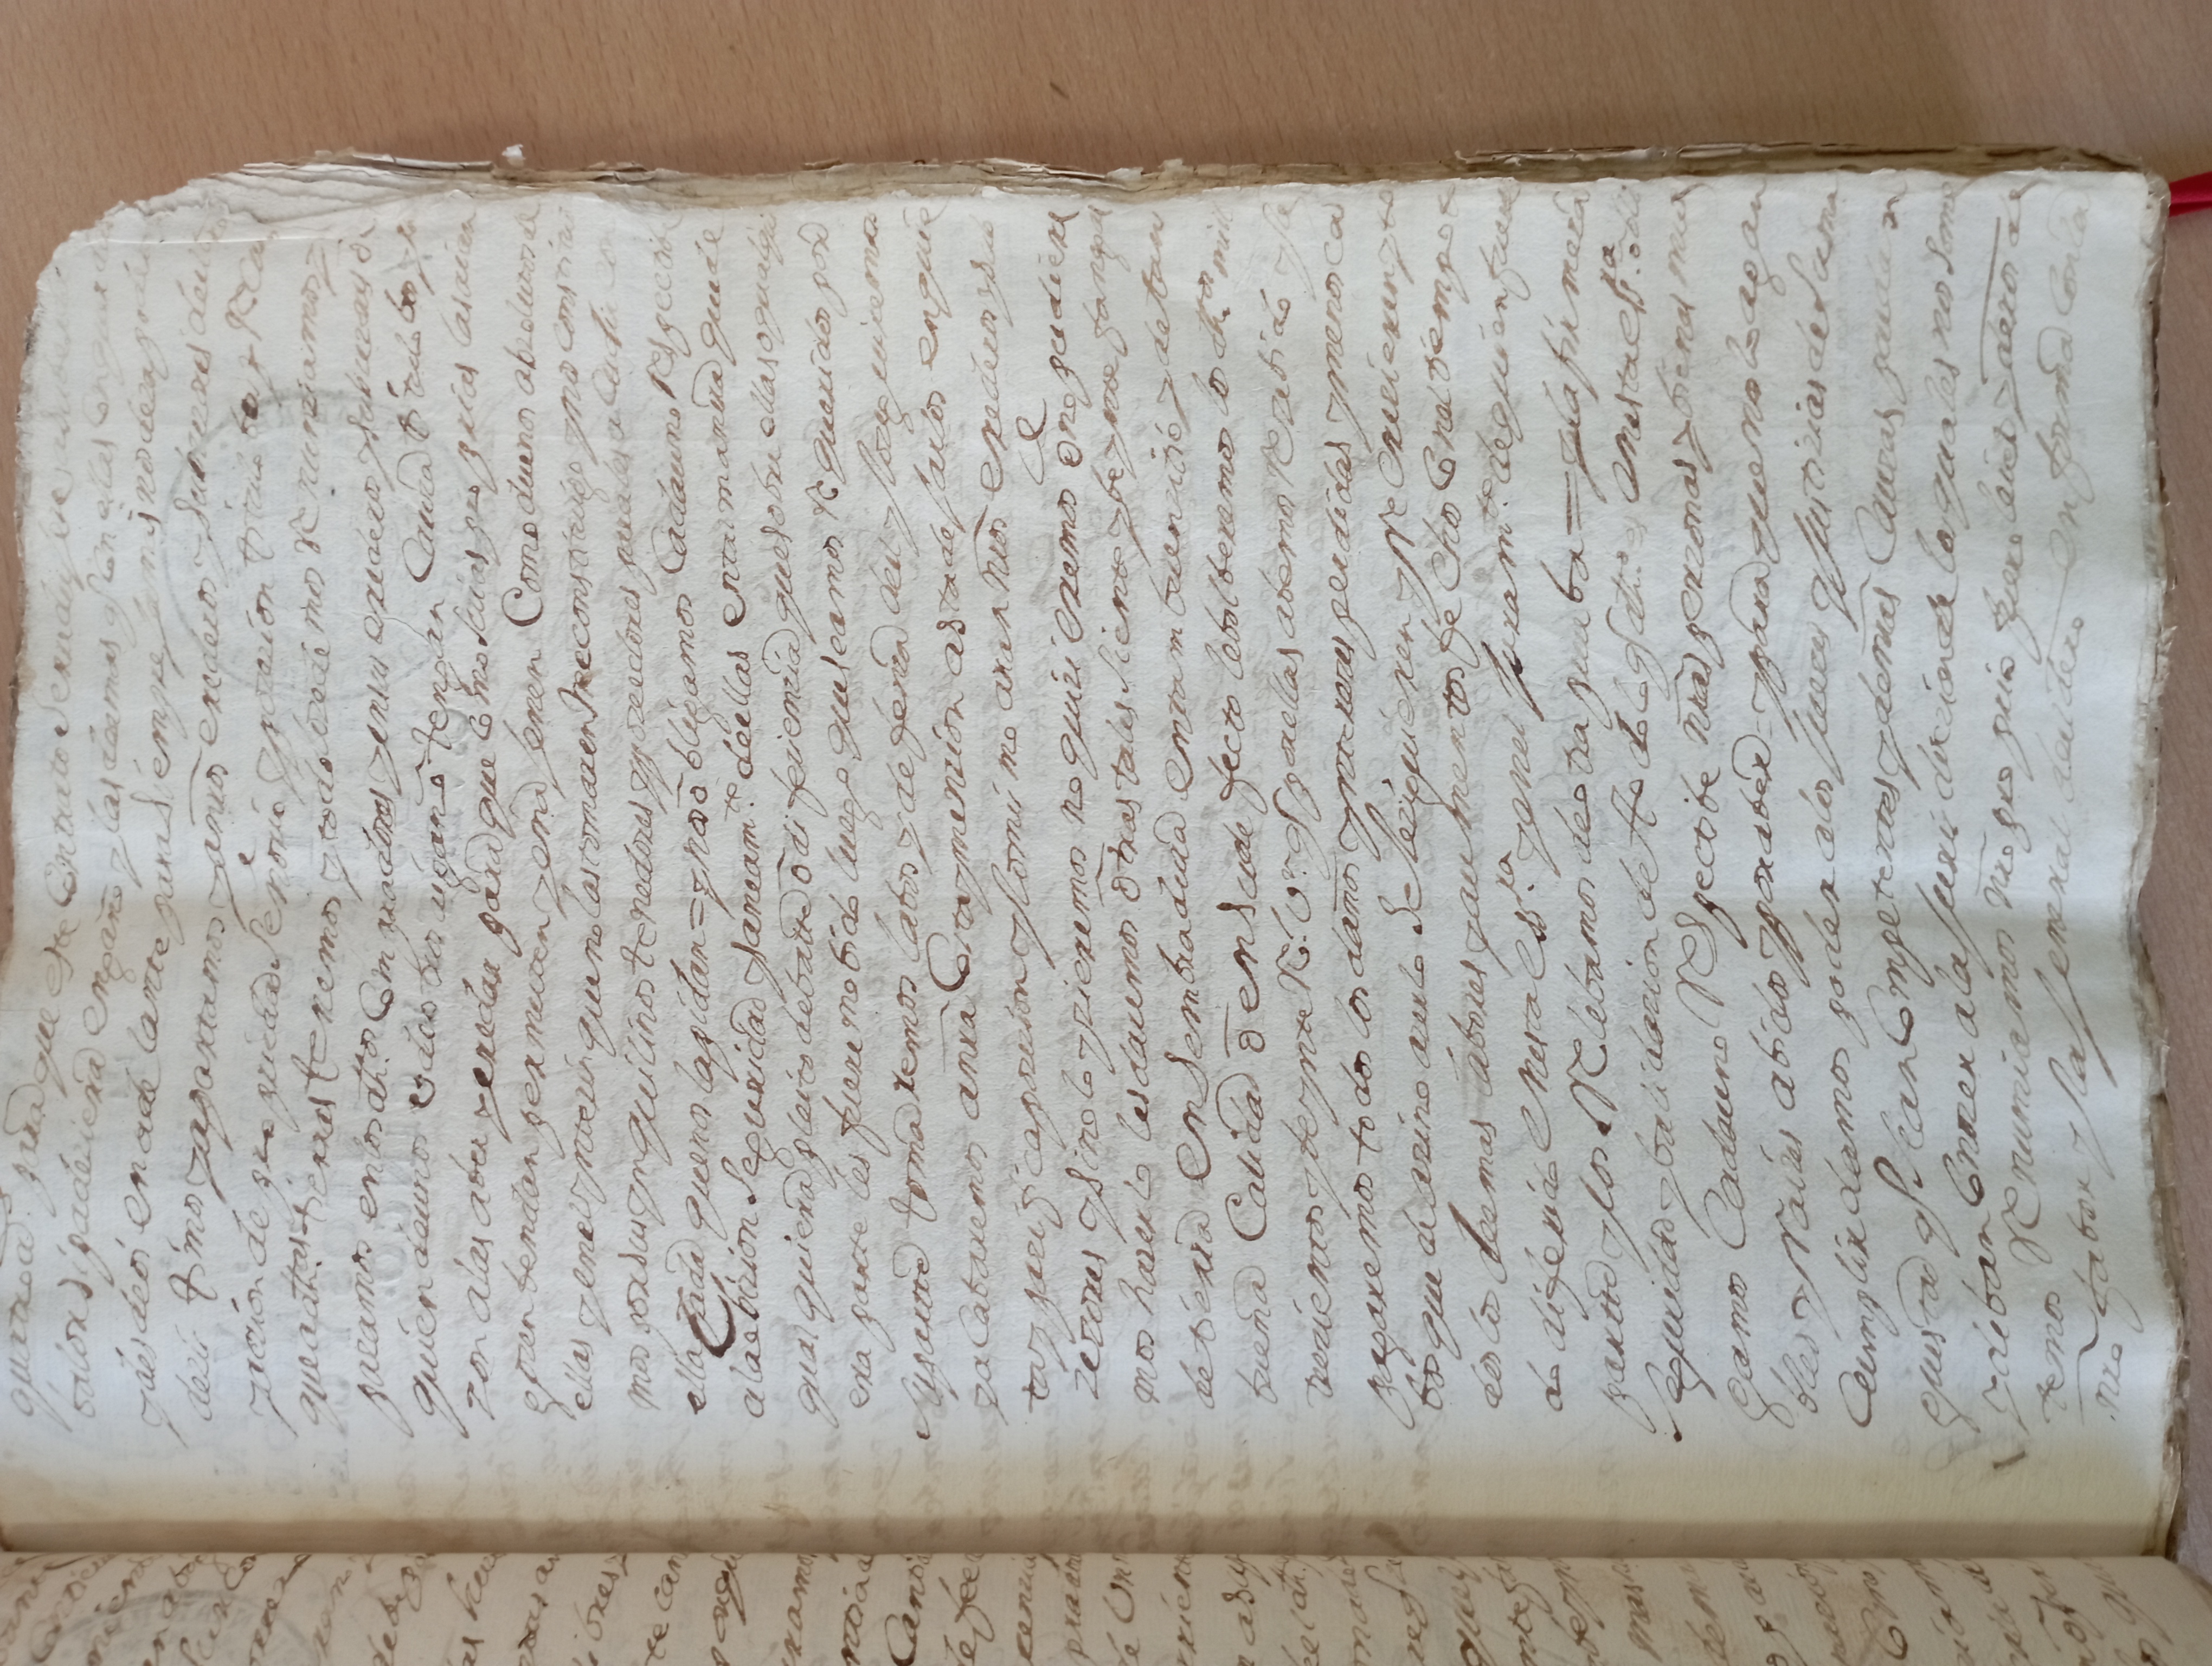 quatro a.s para que este Contrato se
balor si padeziera engaño y las demas q con ellas
y desde oi en adelante para siempre jamas nos
dezis timos y apartamos y a nrõs erederos y subzezores
y azion de propriedad señorio y posezion titulo boz y Re
que a dh.as tierras tenemos y todo lo zedemos Renunziamos y
pasamos en los dh.os Compradores y en sus erederos y subzezores
quien de unos o de otros aigano tengan Causa titulo boz y
zon a las aber y eredar para que Como suias proprias las aian
gozen bendan permuten y enajenen Como duenos absolutos de
ellas y en el ynterin que no las tomaren me constituigo y nos constitui
mos por sus ynquilinos tenedores y poseedores para les acudir con
ella Cada que nos la pidan = y nos obligamos Cada uno Respectibe
a la ebizion seguridad y saneam.to de ellas en tal manera que de
qual quiera pleito debatte o diferienzia que sobre ellas o qualqui
era parte les fuere mobido luego que seamos Requeridos por
su partte tomaremos la bos y defensa del y lo seguiremos
y acabaremos a nrã Costa y menzion asta dejarlos en quie
ta y pazifica posezion y lo mismo aran nrõs erederos y sub
zezores y si no lo yzieremos no quisieremos o no pudiere
mos hazerlo les daremos otras tales siento y beynte fanegas
de tierra en sembradura en tam buen sitio y de tan
buena Calidad o en su defecto le bolberemos los dh.os mill
trezientos y beynte R.s v.n q por ellas abemos Rezebido y le
pagaremos todos los daños yntereses perdidas y menosca
bos que de asi no azerlo se le siguieren y Recrezieren y to
dos los demas labores y aumentos fechos Con el tiempo to
do diferido en esta ess.ra y en el juram.to de quien fuere
partte y los Relebamos de otra prueba = y a la firmeza
seguridad y balidazion de todo lo q dh.o es en esta ess.ra obli
gamos Cada uno Respectibe nrãs perzonas y bienes mue
bles y Raizes abidos y por aber = y para que nos lo agan
Cumplir damos poder a los juezes y justizias de su ma
gestad q sean Competentes y de nrãs Causas puedan
y deban Conozer a la jurisdizion de las quales nos some
temos Renunziamos nrõ proprio fuero leies y derõs de
nrõ fabor y la jeneral del derõ en forma Con la